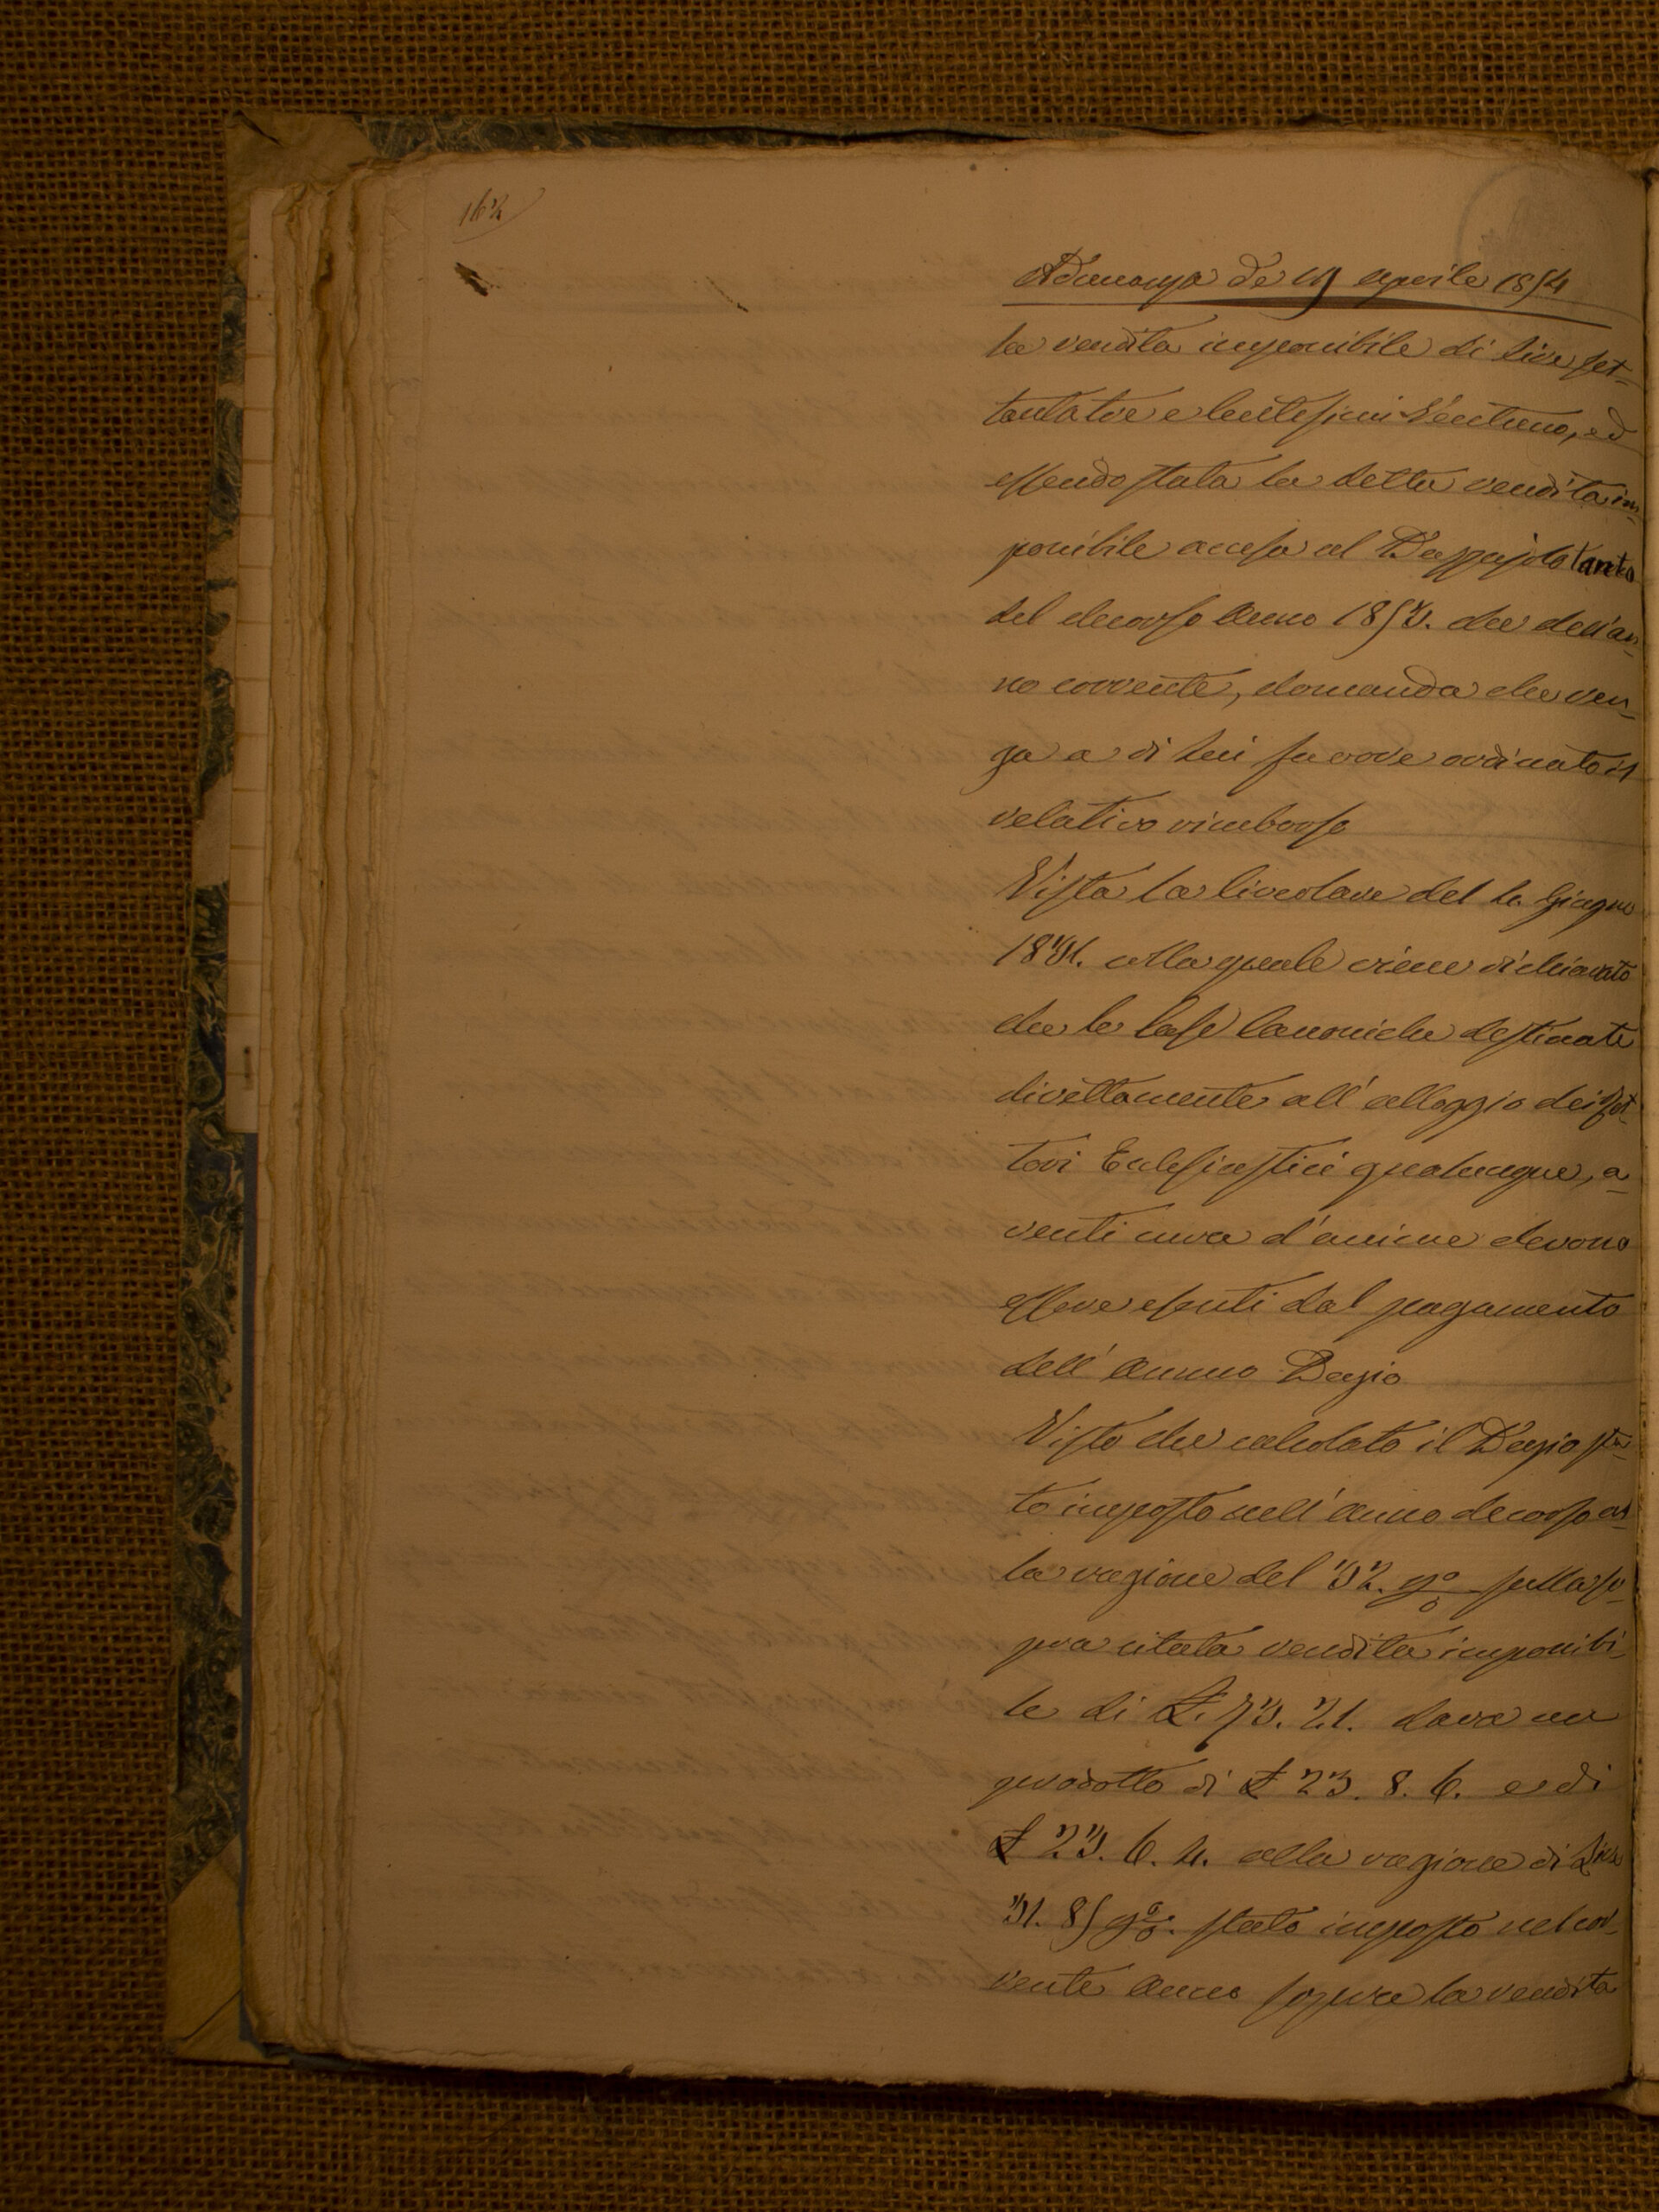 162
Adunanza de 19 Aprile 1854
la rendita imponibile di Lire set-
tantatre e Centesimi Ventuno, ed
essendo stata la detta rendita im-
ponibile accesa al Dazzajolo tanto
del decorso Anno 1853. che dell'an-
no corrente, domanda che ven-
ga a di lui favore ordinato il
relativo rimborso
Vista la Circolare del 4. Giugno
1831. colla quale viene dichiarato
che le Case Canoniche destinate
direttamente all'alloggio dei Ret-
tori Eclesiastici qualunque, a-
venti cura d'anime devono
essere esenti dal pagamento
dell'Annuo Dazio
Visto che calcolato il Dazio sta-
to imposto nell'anno decorso al-
la ragione del 32. p% sulla so-
pra citata rendita imponibi-
le di £. 73. 21. dava un
prodotto di £ 23. 8. 6. e di
£ 23. 6. 4. alla ragione di Lire
31. 85 p%. stato imposto nel cor-
rente Anno sopra la rendita